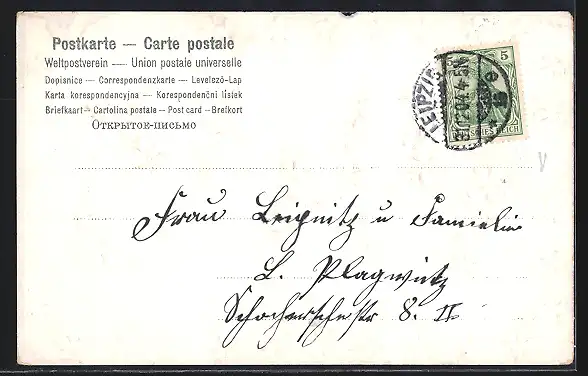 Postkarte — Carte postale
Weltpostverein — Union postale universelle
Dopisnice — Correspondenzkarte — Levelező-Lap
Karta korespondencyjna — Korespondenční lístek
Briefkaart — Cartolina postale — Post card — Brefkort
Открытое письмо
5
LEIPZIG
DEUTSCHES REICH
Frau Leipnitz u Familie
L. Plagwitz
Schocherschestr 8. II